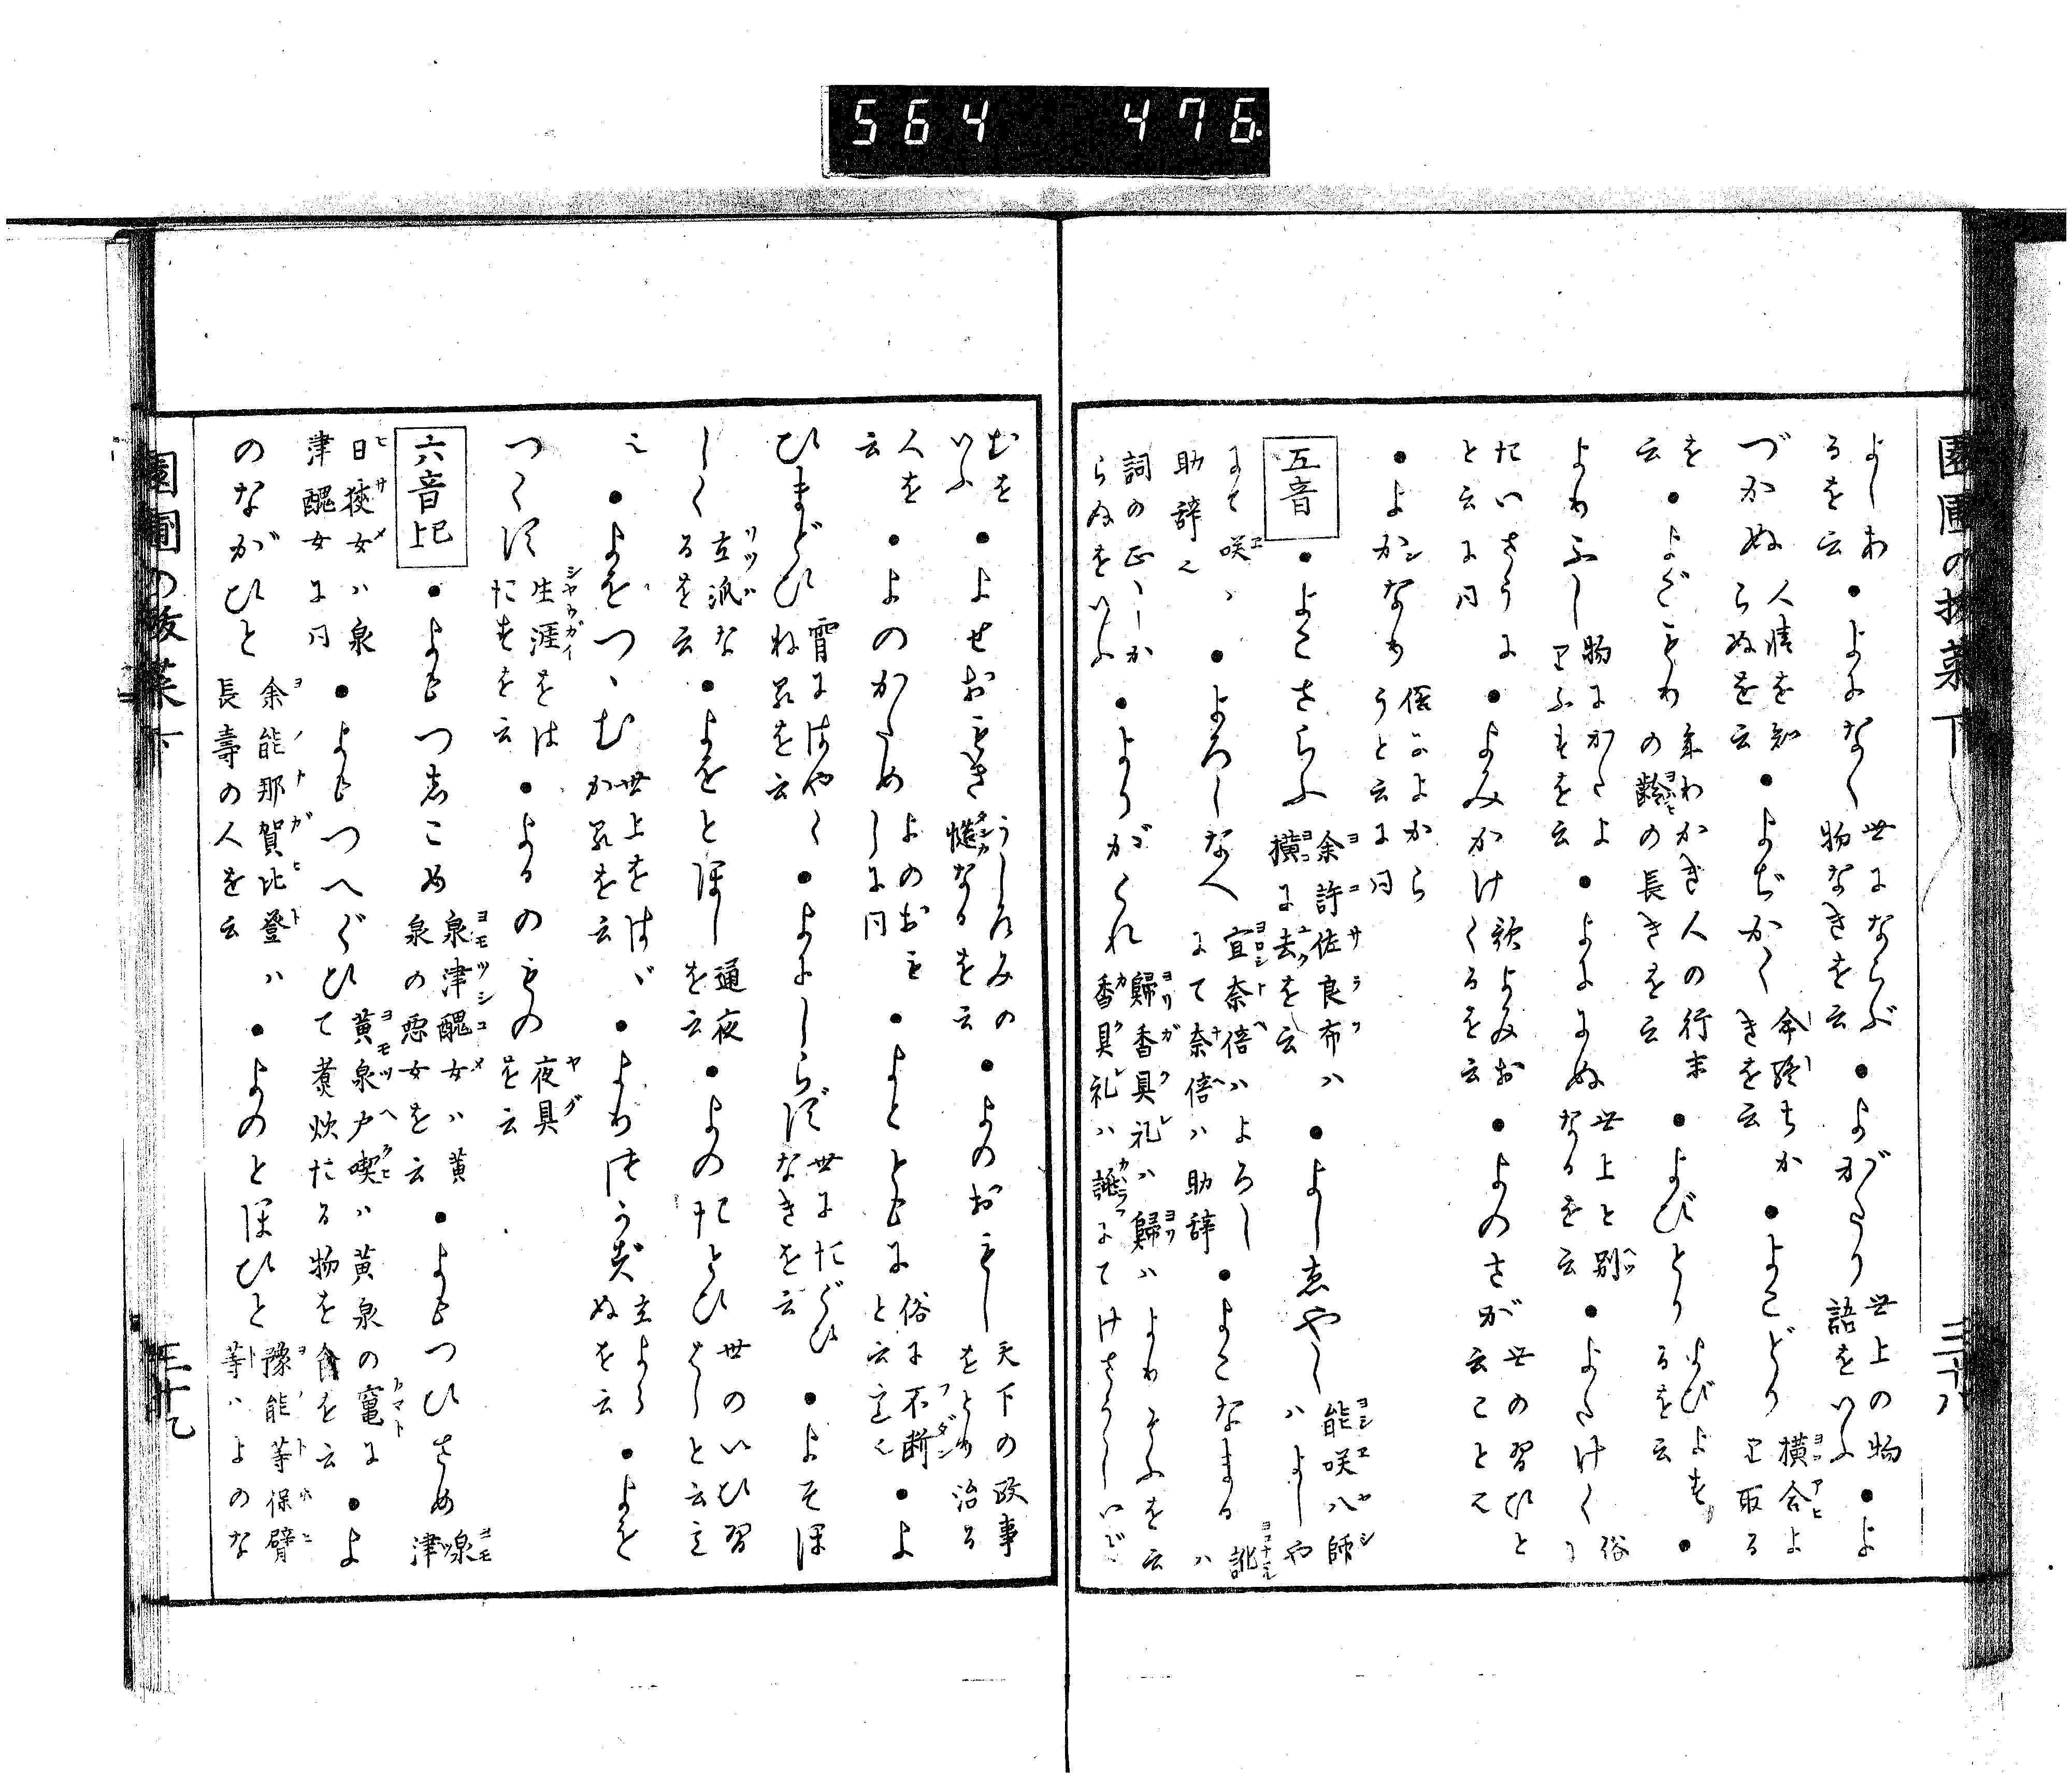 564 476
よしあ
るを云
●よになく 世にならぶ
物なきを云
●よがたり 世上の物
語をいふ
●よ
づかぬ 人情を知
らぬを云
●よぢかく 命終ちか
きを云
●よこどり 横合よ
り取る
を云
●よごもり 年わかき人の行末
の齢の長きを云
●よびとり よびよす
るを云
●
よりふし 物にかたよ
りふすを云
●よににぬ 世上と別
なるを云
●よたけく 俗に
たいさうに
と云に同
●よみかけ 歌よみお
くるを云
●よのさが 世の習ひと
云こと也
●よかなり 俗によから
うと云に同
五音
●よこさらふ 余許佐良布ハ
横に去を云
●よしゑやし 能咲八師
ハよしや
にて咲ハ
助辞也
●よろしなへ 宜奈倍ハよろし
にて奈倍ハ助辞
●よこなまる 訛ハ
詞の正しか
らぬをいふ
●よりがくれ 歸香具礼ハ歸ハよりそふを云
香具礼ハ誂にてけさうしいど
園圃の抜菜 下
三十八
むを
いふ
●よせおもき うしろみの
慥なるを云
●よのおもし 天下の政事
をとり治る
人を
云
●よのかため よのおも
しに同
●よとともに 俗に不断
と云意也
●よ
ひまどひ 宵にはやく
ね入を云
●よにしらず 世にたぐひ
なきを云
●よそほ
しく 立派な
るを云
●よをとほし 通夜
を云
●よのたとひ 世のいひ習
はしと云意
也
●よをつゝむ 世上をはゞ
かるを云
●よりつかず 立よら
ぬを云
●よを
つくす 生涯をは
たすを云
●よるのもの 夜具
を云
六音上巳
●よもつしこめ 泉津醜女ハ黄
泉の悪女を云
●よもつひさめ 泉
津
日狹女ハ泉
津醜女に同
●よもつへぐひ 黄泉戸喫ハ黄泉の竃に
て煮炊たる物を食を云
●よ
のながひと 余能那賀比登ハ
長壽の人を云
●よのとほひと 豫能等保臂
等ハよのな
園圃の抜菜 下
三十九